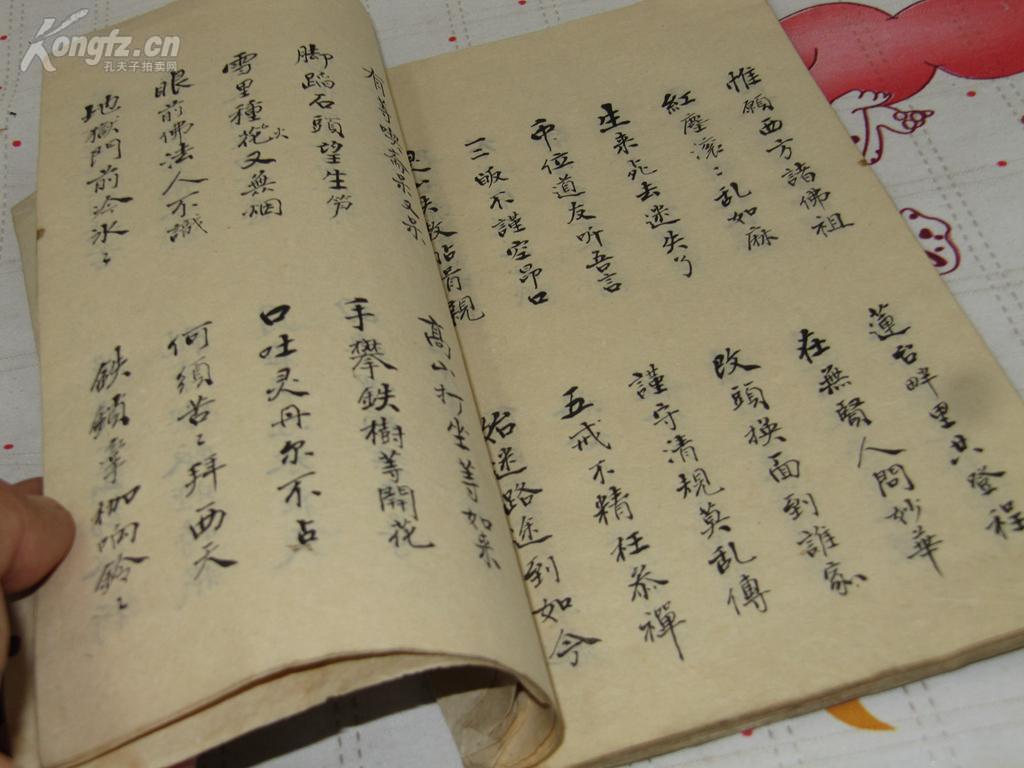 惟願西方諸佛祖 蓮台畔里共登程
紅塵滾〻乱如麻 在無賢人問妙華
生来死去迷失了 改頭換面到誰家
中位道友听吾言 謹守清規莫乱傳
三皈不謹空昂口 五戒不精枉叅禪
始迷路途到如今
高山打坐等如来
脚踏石頭望生笋 手攀鉄樹等開花
雪里種花火又無烟 口吐灵丹尔不占
眼前佛法人不識 何須苦〻拜西天
地獄門前冷氷〻 鉄鎖枷响鈴〻
Kongfz.cn
孔夫子拍卖网